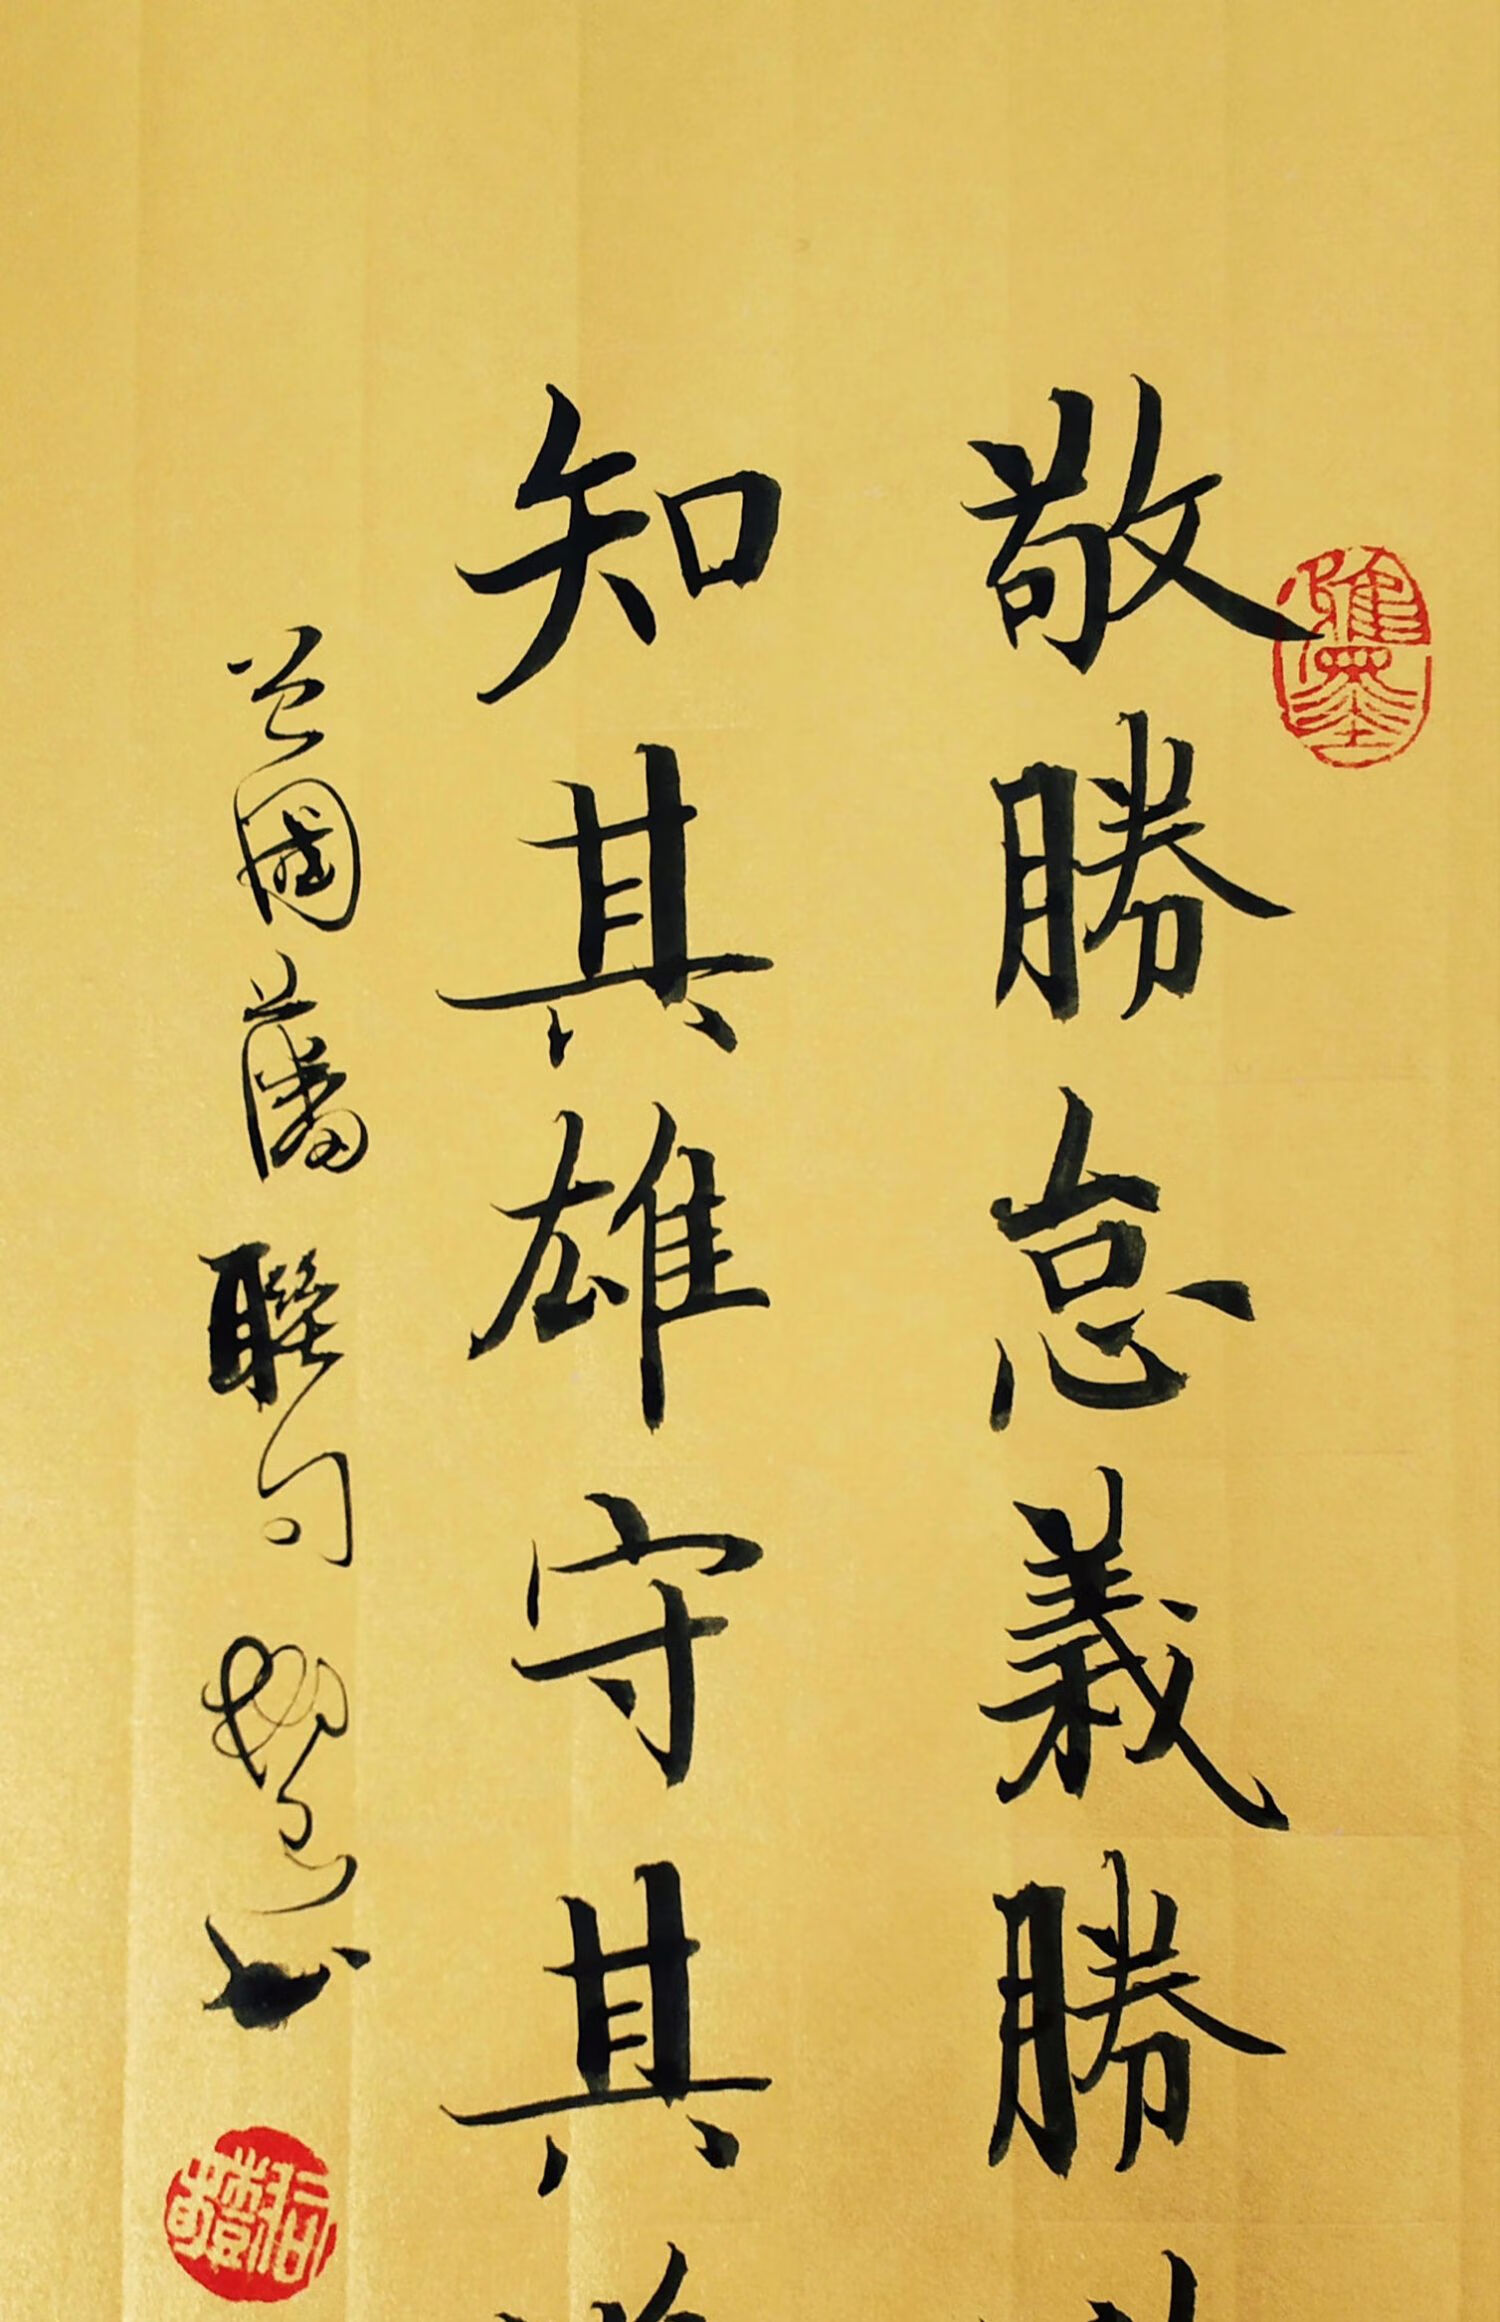 敬勝怠義勝
知其雄守其
曾國藩聯句